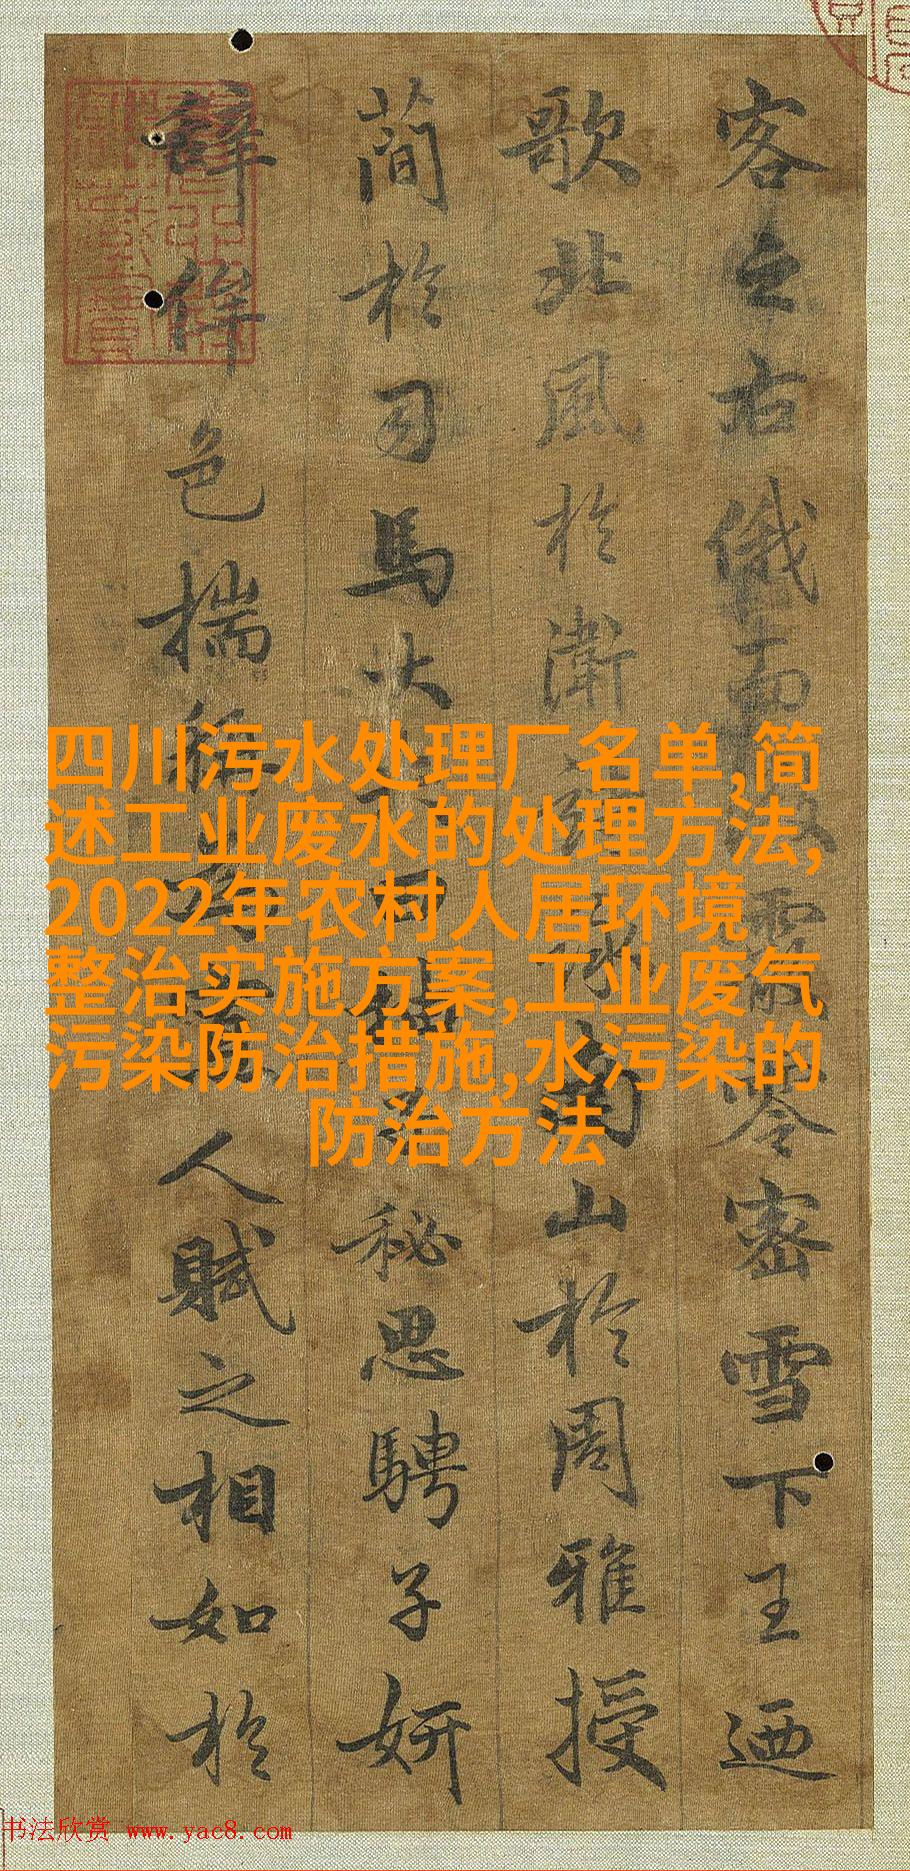 客之右俄而霰零密雪下王迺
歌北風於衛詠南山於周雅授
簡於司馬大曰抽秘思騁子妍
辭侔色揣稱人賦之相如於
四川污水处理厂名单,简
述工业废水的处理方法,
2022年农村人居环境
整治实施方案,工业废气
污染防治措施,水污染的
防治方法
书法欣赏 www.yac8.com